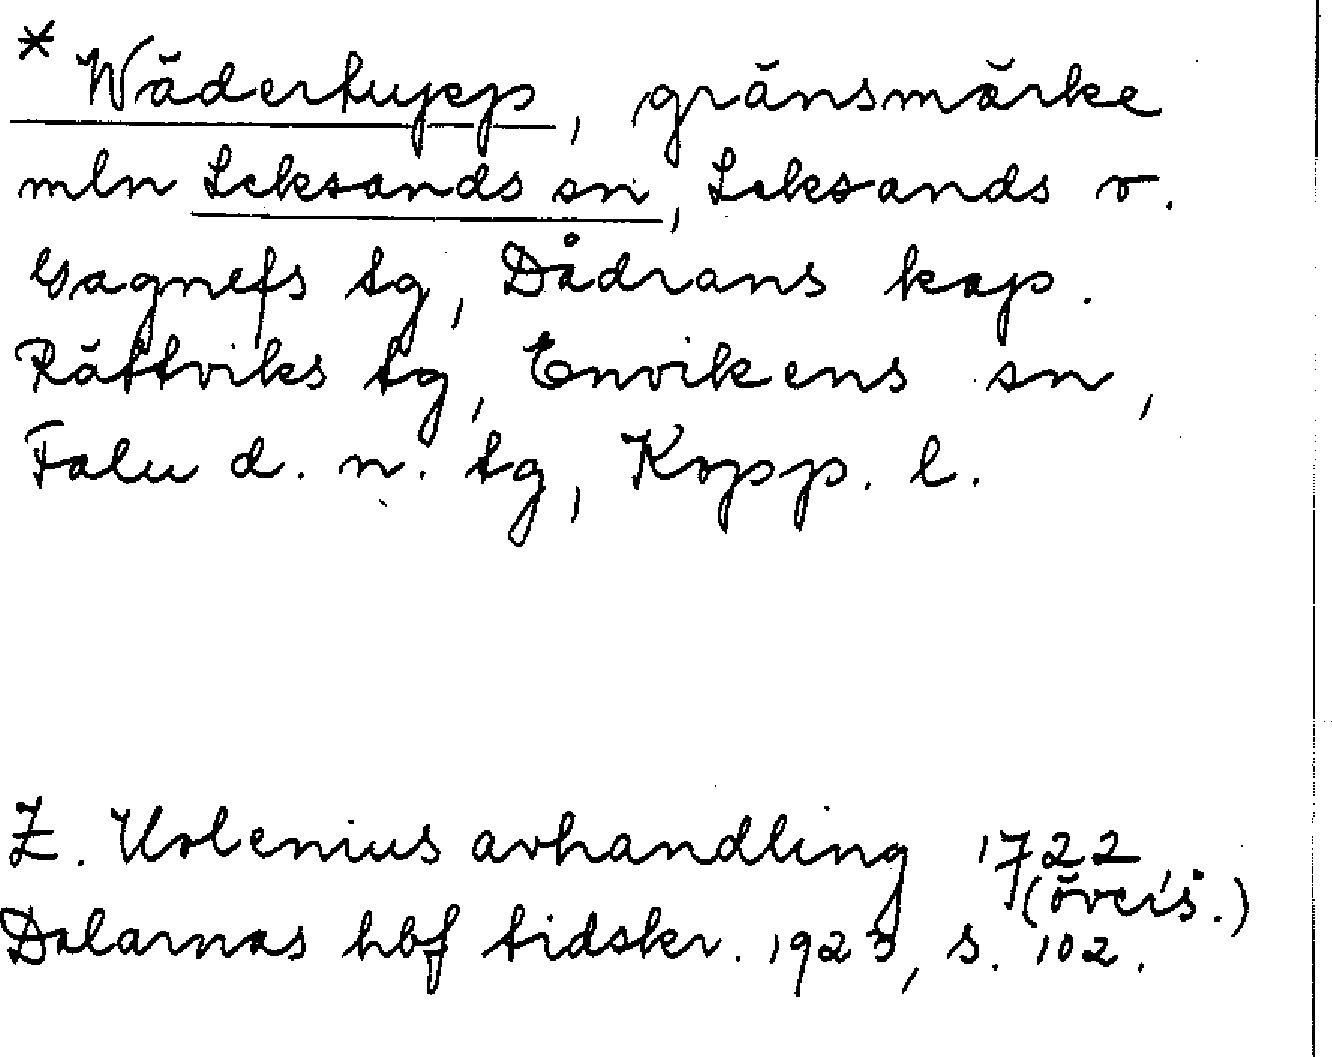 * Wädertupp, gränsmärke
mln Leksands sn, Leksands o.
Gagnefs tg, Dådrans kap.
Rättviks tg, Envikens sn,
Falu d. n. tg, Kopp. l.
Z. Holenius avhandling 1722,
(övers.)
Dalarnas hbf tidskr. 1923, s. 102.